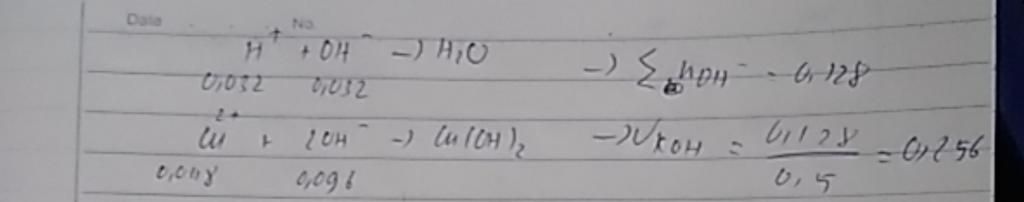 Date No.
H⁺ + OH⁻ → H₂O → Σ nOH⁻ = 0,128
0,032 0,032
Cu²⁺ + 2OH⁻ → Cu(OH)₂ → VKOH = 0,128 / 0,5 = 0,256
0,048 0,096